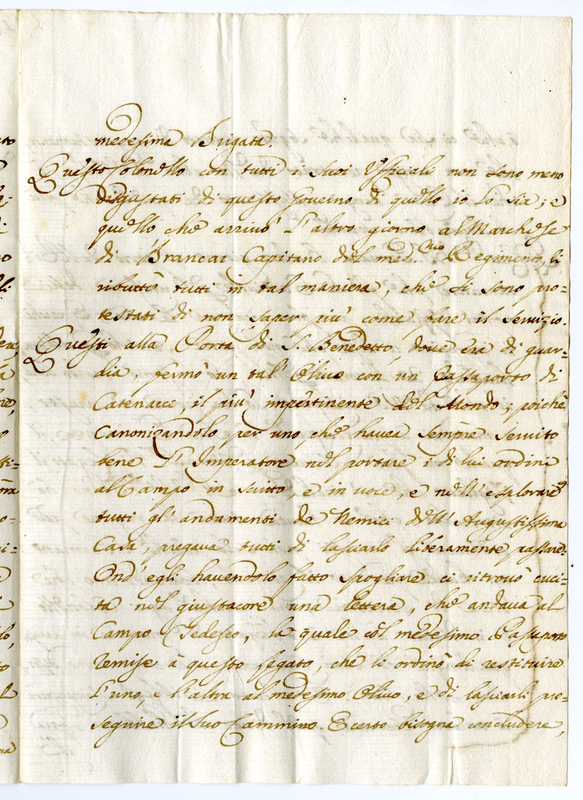 medesima Brigata.
Questo Colonello con tutti i suoi Ufficiali non sono meno
disgustati di questo Governo di quello io lo sia; e
quello che arrivò l'altro giorno al Marchese
di Brancas Capitano del med.mo Regimento, li
ributtò tutti in tal maniera, che si sono pro-
testati di non saper più come fare il servizio.
Questi alla Porta di S. Benedetto, dove era di guar-
dia, fermò un tal' Olivo con un Passaporto di
Catenacci, il più impertinente del Mondo; poiche
Canonizandolo per uno che havea sempre servito
bene l'Imperatore nel portare i di lui ordini
al Campo in scritto, e in voce, e nell'esplorare
tutti gl'andamenti de Nemici dell'Augustissima
Casa, pregava tutti di lasciarlo liberamente passare.
Ond'egli havendolo fatto spogliare ci ritrovò cuci-
ta nel giustacore una lettera, che andava al
Campo Tedesco, la quale col medesimo Passaporto
remise à questo Legato, che li ordinò di restituire
l'uno, e l'altra al medesimo Olivo, e di lasciarli pro-
seguire il suo Cammino. E certo bisogna concludere,